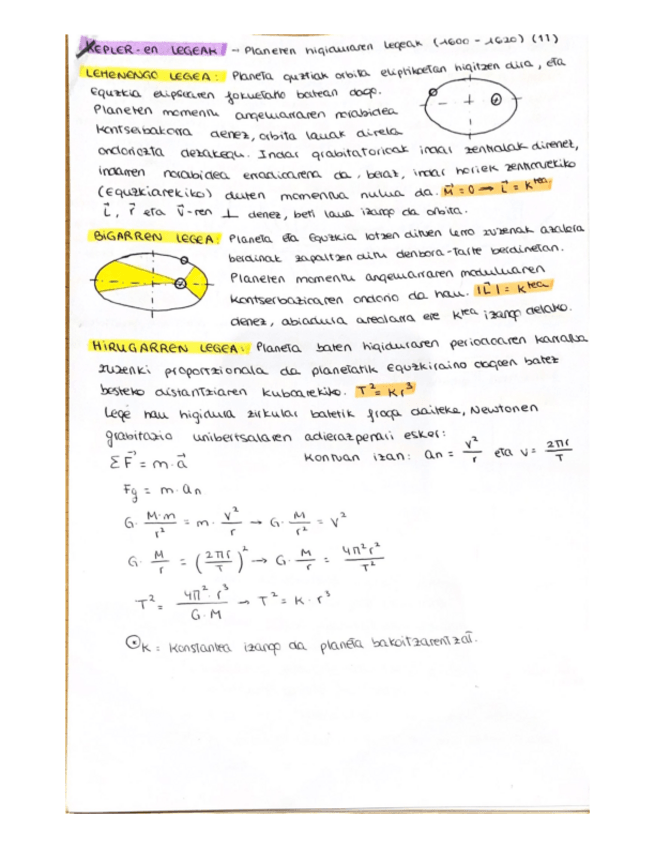 KEPLER-en LEGEAK → Planeten higiduraren legeak (1600-1620) (11)
LEHENENGO LEGEA: Planeta guztiak orbita eliptikoetan higitzen dira, eta
Eguzkia elipsearen fokuetako batean dago.
Planeten momentu angeluarraren norabidea
kontserbakorra denez, orbita lauak direla
ondoriozta dezakegu. Indar grabitatorioak indar zentralak direnez,
indarren norabidea erradiala da, beraz, indar horiek zentroarekiko
(Eguzkiarekiko) duten momentua nulua da. M⃗=0 → L⃗=Ktea
L⃗, r⃗ eta v⃗-ren ⊥ denez, beti laua izango da orbita.
BIGARREN LEGEA: Planeta eta Eguzkia lotzen dituen lerro zuzenak azalera
berdinak zapaltzen ditu denbora-tarte berdinetan.
Planeten momentu angeluarraren moduluaren
kontserbazioaren ondorio da hau. |L⃗| = Ktea
denez, abiadura areolarra ere Ktea izango delako.
HIRUGARREN LEGEA: Planeta baten higiduraren periodoaren karratua
zuzenki proportzionala da planetatik Eguzkiraino dagoen batez
besteko distantziaren kuboarekiko. T² = K r³
Lege hau higidura zirkular batetik froga daiteke, Newtonen
grabitazio unibertsalaren adierazpenari esker:
ΣF⃗ = m·a⃗ kontuan izan: an = v²/r eta v = 2πr/T
Fg = m·an
G· M·m/r² = m· v²/r → G· M/r² = v²
G· M/r = (2πr/T)² → G· M/r = 4π²r²/T²
T² = 4π²·r³/G·M → T² = K·r³
⊙K = Konstantea izango da planeta bakoitzarentzat.